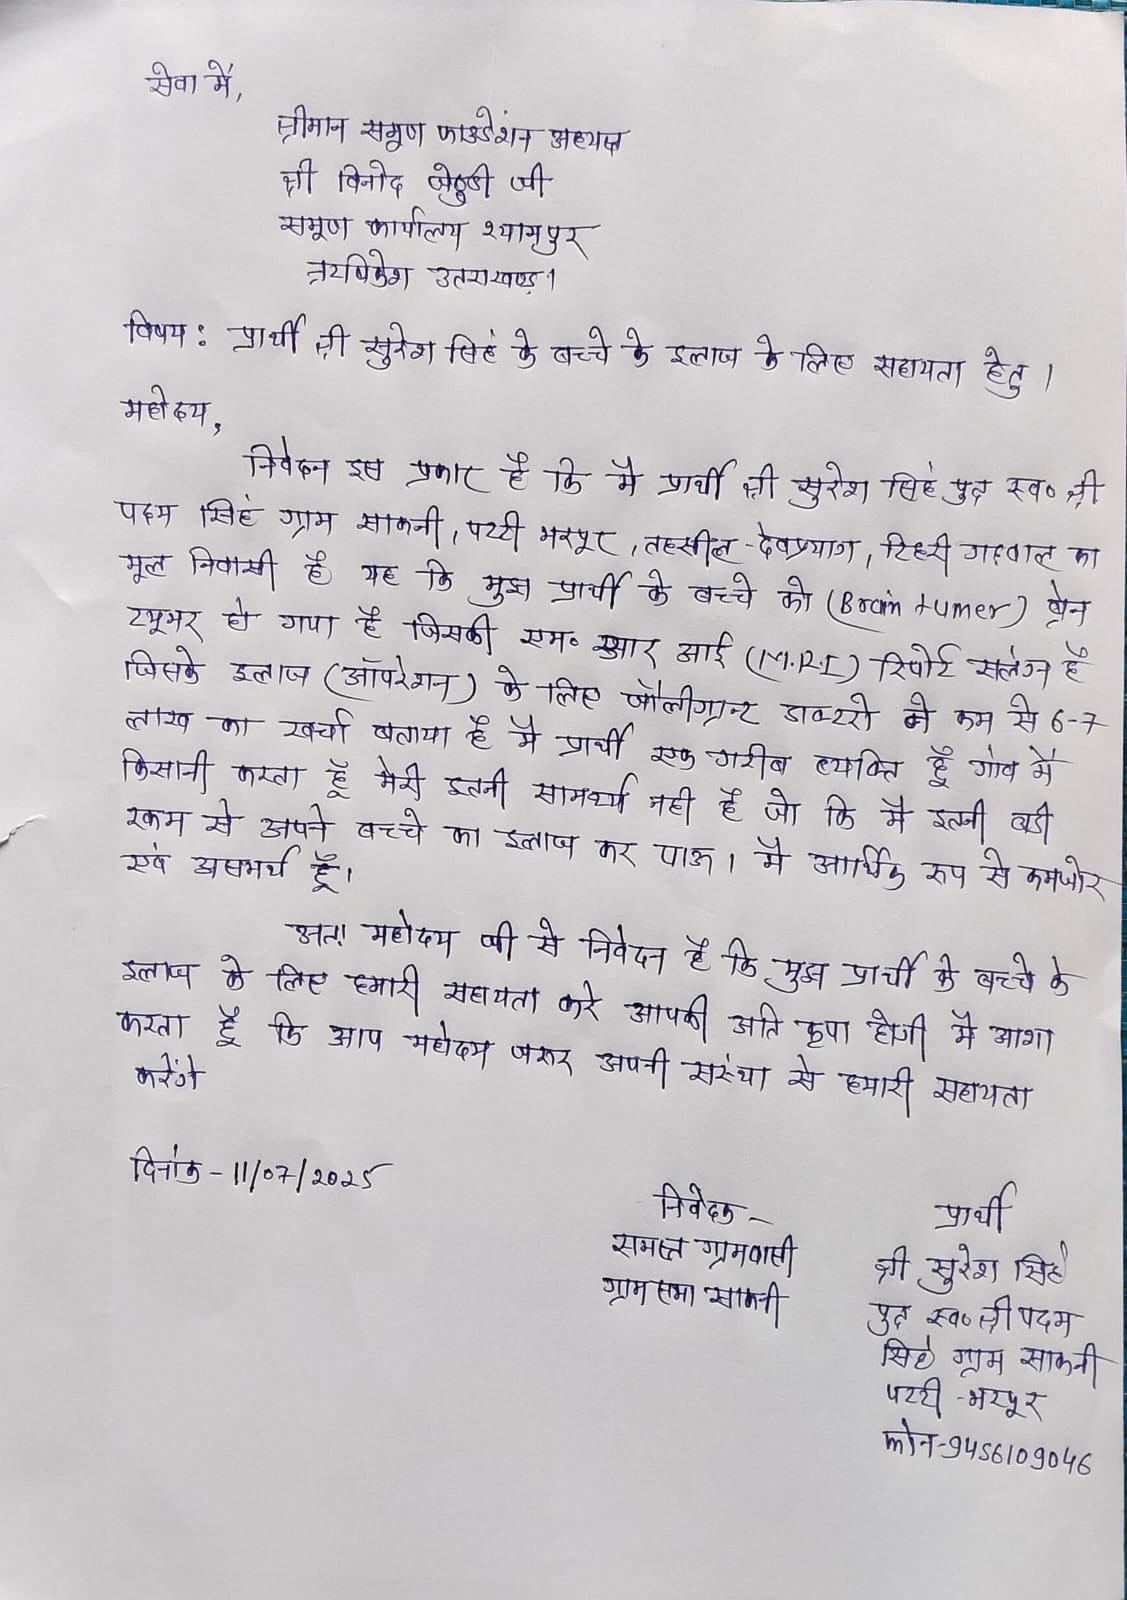 सेवा में,
श्रीमान समूण फाउडेशंन अध्यक्ष
श्री विनोद जेठुडी जी
समूण कार्यालय श्यामपुर
ऋषिकेश उतराखण्ड।
विषय: प्रार्थी श्री सुरेश सिहं के बच्चे के इलाज के लिए सहायता हेतु।
महोदय,
निवेदन इस प्रकार है कि मै प्रार्थी श्री सुरेश सिहं पुत्र स्व॰ श्री
पदम सिहं ग्राम साकनी, पटटी भरपूर, तहसील - देवप्रयाग, टिहरी गढवाल का
मूल निवासी है यह कि मुझ प्रार्थी के बच्चे को (Brain tumer) ब्रेन
टयूमर हो गया है जिसकी एम॰ आर आई (M.R.I) रिपोर्ट सलंग्न है
जिसके इलाज (ऑपरेशन) के लिए जौलीग्रान्ट डाक्टरो ने कम से 6-7
लाख का खर्चा बताया है मै प्रार्थी एक गरीब व्यक्ति हूँ गाँव मै
किसानी करता हूँ मेरी इतनी सामर्थ्य नही है जो कि मै इतनी बडी
रकम से अपने बच्चे का इलाज कर पाऊ। मै आर्थिक रुप से कमजोर
एवं असमर्थ हूँ।
अतः महोदय जी से निवेदन है कि मुझ प्रार्थी के बच्चे के
इलाज के लिए हमारी सहायता करे आपकी अति कृपा होगी मै आशा
करता हूँ कि आप महोदय जरुर अपनी संस्था से हमारी सहायता
करेंगे
दिनांक - 11/07/2025
निवेदक -
समस्त ग्रामवासी
ग्रामसभा साकनी
प्रार्थी
श्री सुरेश सिहं
पुत्र स्व॰ श्री पदम
सिहं ग्राम साकनी
पटटी - भरपूर
फोन-9456109046